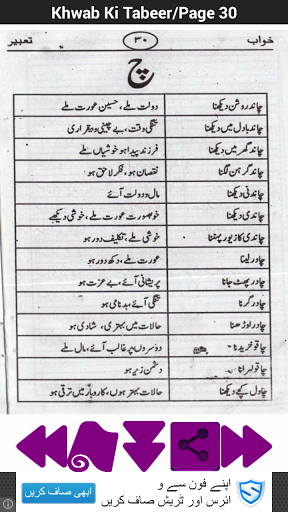 Khwab Ki Tabeer/Page 30
خواب ۳۰ تعبیر
چ
چاند روشن دیکھنا دولت ملے، حسین عورت ملے
چاند بادل میں دیکھنا تنگی وقت، بے چینی و بیقراری
چاند گھر میں دیکھنا فرزند پیدا ہو خوشیاں ملے
چاند گرہن لگنا نقصان ہو، فکر لاحق ہو
چاندنی دیکھنا مال و دولت آئے
چاندی دیکھنا خوبصورت عورت ملے، خوشی دیکھے
چاندی کا زیور پہننا خوشی ملے، تکلیف دور ہو
چادر لینا عورت ملے، دکھ دور ہو
چادر پھٹ جانا پریشانی آئے، بے عزت ہو
چادر گرنا تنگی آئے، بدنامی ہو
چادر اوڑھنا حالات میں بہتری، شادی ہو
چاقو خریدنا دوسروں پر غالب آئے، مال ملے
چاقو لہرانا دشمن زیر ہو
چاول کچے دیکھنا حالات بہتر ہوں، کاروبار میں ترقی ہو
اپنے فون سے و
ائرس اور ٹریش صاف کریں
ابھی صاف کریں